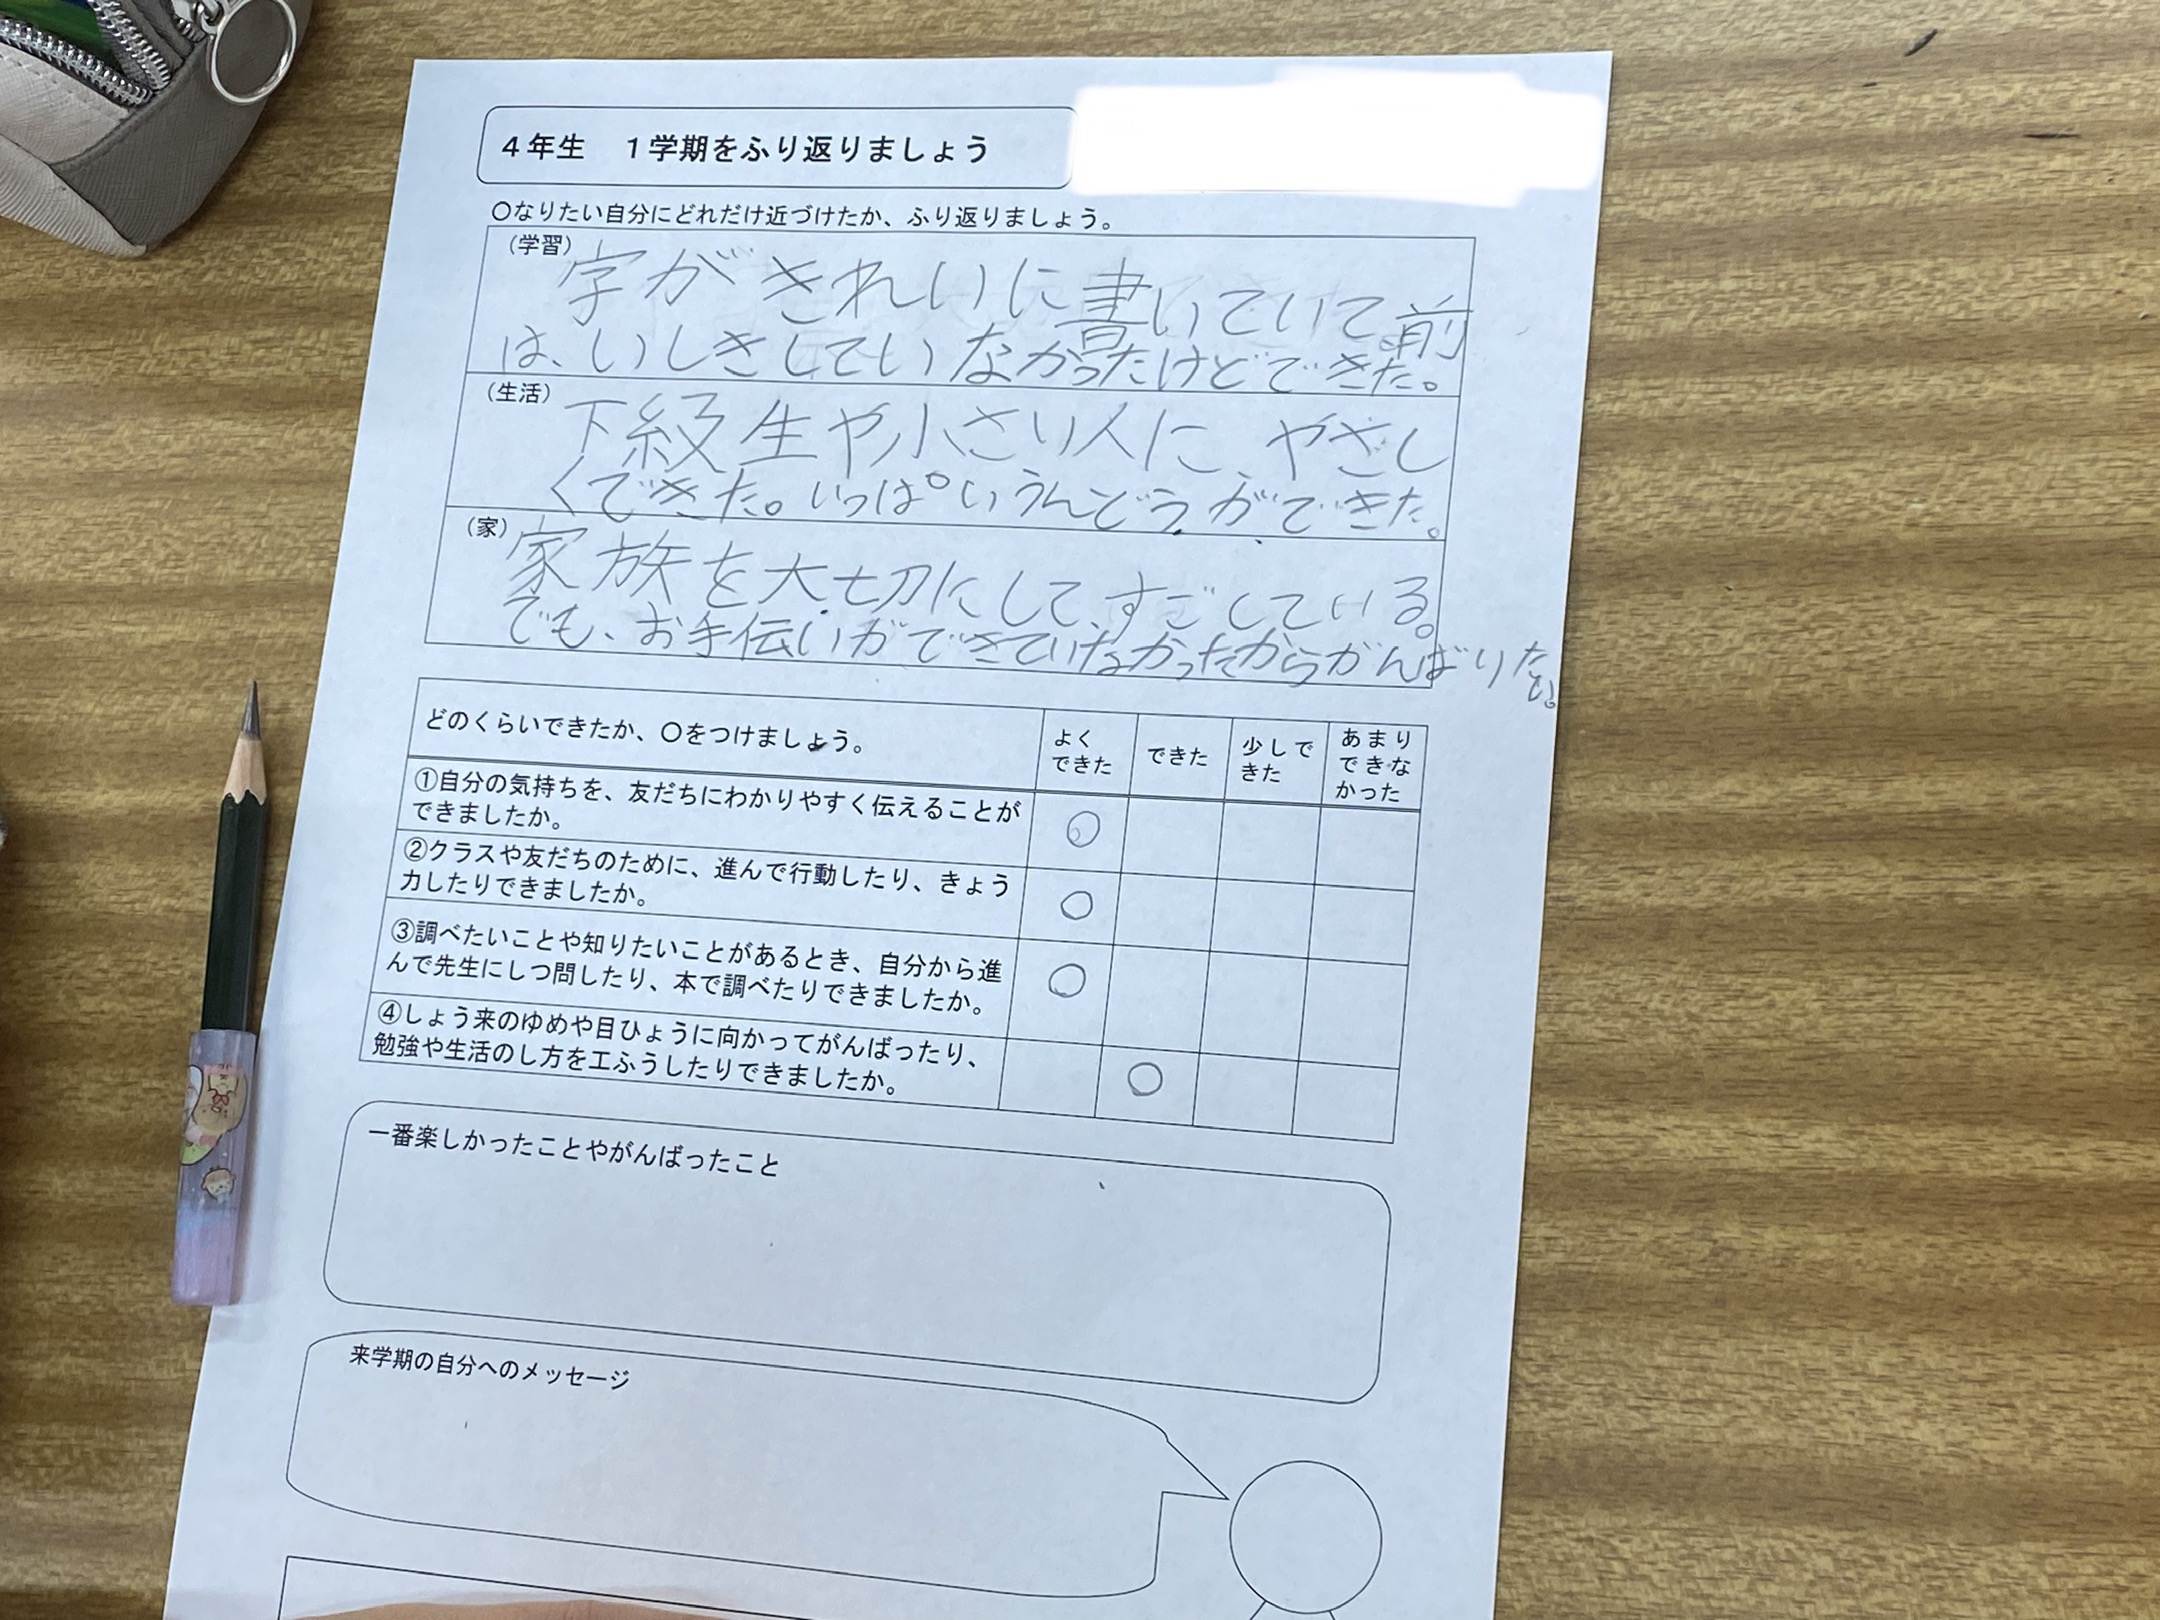 4年生　1学期をふり返りましょう
〇なりたい自分にどれだけ近づけたか、ふり返りましょう。
（学習）
字がきれいに書いていて前
は、いしきしていなかったけどできた。
（生活）
下級生や小さい人に、やさし
くできた。いっぱいうんどうができた。
（家）
家族を大切にしてすごしている。
でも、お手伝いができていなかったからがんばりたい。
どのくらいできたか、〇をつけましょう。
よく
できた
できた
少しで
きた
あまり
できな
かった
①自分の気持ちを、友だちにわかりやすく伝えることが
できましたか。
〇
②クラスや友だちのために、進んで行動したり、きょう
力したりできましたか。
〇
③調べたいことや知りたいことがあるとき、自分から進
んで先生にしつ問したり、本で調べたりできましたか。
〇
④しょう来のゆめや目ひょうに向かってがんばったり、
勉強や生活のし方を工ふうしたりできましたか。
〇
一番楽しかったことやがんばったこと
来学期の自分へのメッセージ